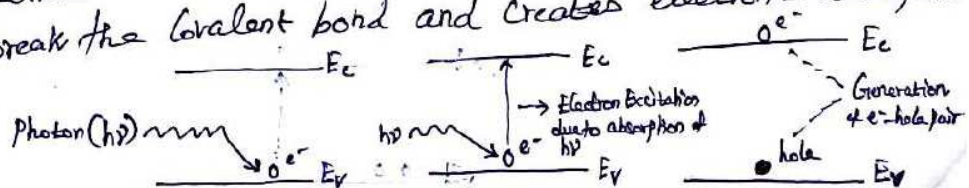 break the Covalent bond and Creates
e⁻ Ec
Ec
Ec
Photon(hν)
hν
→ Electron Excitation
due to absorption of
hν
Generation
of e⁻-hole pair
e⁻
e⁻
hole
Ev
Ev
Ev